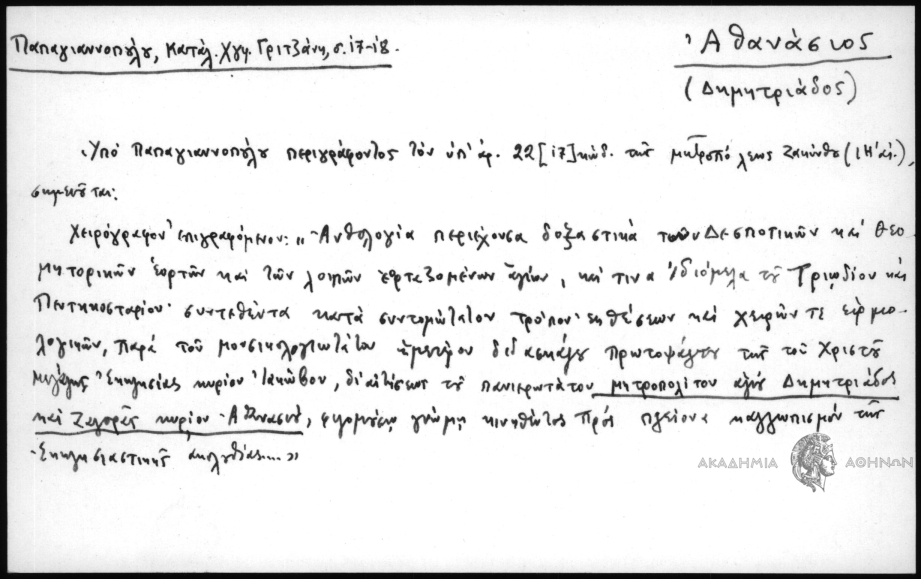 Παπαγιαννοπούλου, Κατάλ. Χγφ. Γριτζάνη, σ. 17-18.
Ἀθανάσιος
(Δημητριάδος)
Ὑπὸ Παπαγιαννοπούλου περιγράφοντος τὸν ὑπ' ἀρ. 22 [17] κώδ. τῆς μητροπόλεως Ζακύνθου (ΙΗ' αἰ.),
σημειοῦται:
Χειρόγραφον ἐπιγραφόμενον: "Ἀνθολογία περιέχουσα δοξαστικὰ τῶν Δεσποτικῶν καὶ Θεο
μητορικῶν ἑορτῶν καὶ τῶν λοιπῶν ἑορταζομένων ἁγίων, καί τινα ἰδιόμελα τοῦ Τριῳδίου καὶ
Πεντηκοσταρίου· συντεθέντα κατὰ συντομώτατον τρόπον ἐκ θέσεων καὶ χειρῶν τε εἱρμο
λογικῶν, παρὰ τοῦ μουσικολογιωτάτου ἡμετέρου διδασκάλου πρωτοψάλτου τῆς τοῦ Χριστοῦ
μεγάλης Ἐκκλησίας κυρίου Ἰακώβου, δι' αἰτήσεως τοῦ πανιερωτάτου μητροπολίτου ἁγίου Δημητριάδος
καὶ Ζαγορᾶς κυρίου Ἀθανασίου, φιλομούσῳ γνώμῃ κινηθέντος πρὸς πλείονα καλλωπισμὸν τῆς
Ἐκκλησιαστικῆς ἀκολουθίας..."
ΑΚΑΔΗΜΙΑ ΑΘΗΝΩΝ